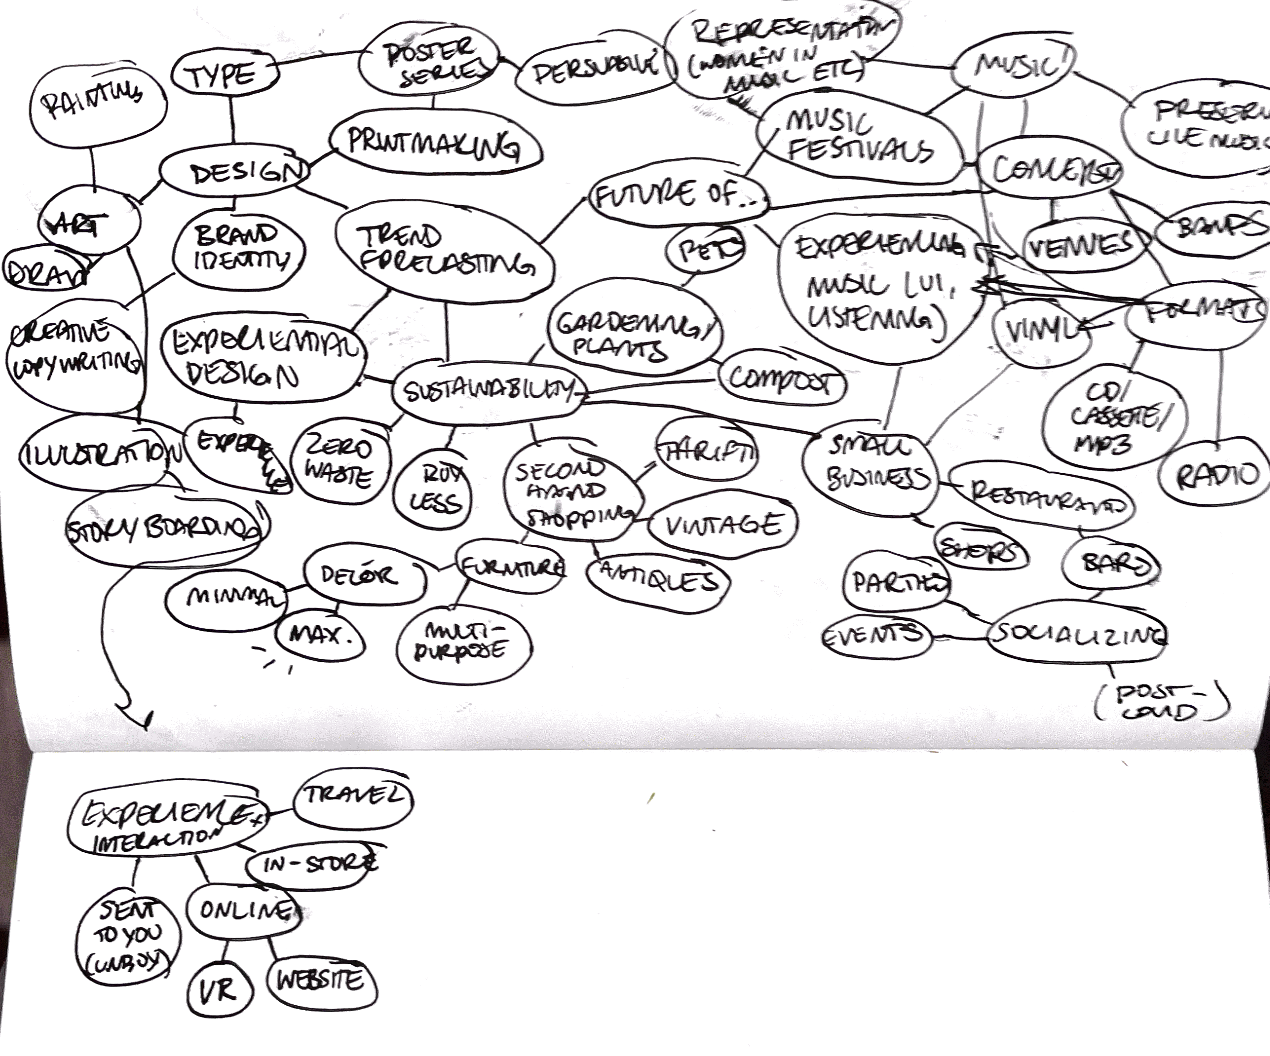 PAINTING
TYPE
POSTER
SERIES
PERSUASIVE
REPRESENTATION
(WOMEN IN
MUSIC ETC)
MUSIC!
PRESERV
LIVE MUSIC
PRINTMAKING
MUSIC
FESTIVALS
DESIGN
FUTURE OF...
CONCERTS
ART
DRAW
BRAND
IDENTITY
TREND
FORECASTING
PETS
EXPERIENCING
MUSIC (UI,
LISTENING)
VENUES
BANDS
CREATIVE
COPYWRITING
EXPERIENTIAL
DESIGN
GARDENING/
PLANTS
VINYL
FORMATS
SUSTAINABILITY
COMPOST
CD/
CASSETTE/
MP3
RADIO
ILLUSTRATION
ZERO
WASTE
BUY
LESS
SECOND
HAND
SHOPPING
THRIFT
VINTAGE
SMALL
BUSINESS
RESTAURANTS
STORYBOARDING!
MINIMAL
DECOR
FURNITURE
ANTIQUES
SHOPS
BARS
PARTIES
EVENTS
SOCIALIZING
(POST-
COVID)
MAX.
MULTI-
PURPOSE
EXPERIENCE +
INTERACTION
TRAVEL
IN-STORE
SENT
TO YOU
(UNBOX)
ONLINE
VR
WEBSITE